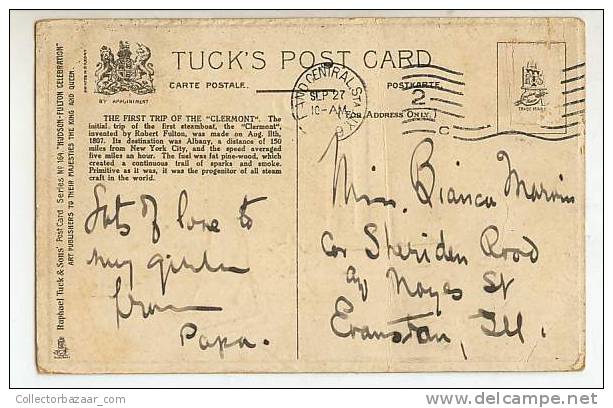 TUCK'S POST CARD
BY APPOINTMENT
CARTE POSTALE.
POSTKARTE.
GRAND CENTRAL STA.
SEP 27
10-AM
2
C
(FOR ADDRESS ONLY.)
TRADE MARK
THE FIRST TRIP OF THE "CLERMONT". The
initial trip of the first steamboat, the "Clermont",
invented by Robert Fulton, was made on Aug. 11th,
1807. Its destination was Albany, a distance of 150
miles from New York City, and the speed averaged
five miles an hour. The fuel was fat pine-wood, which
created a continuous trail of sparks and smoke.
Primitive as it was, it was the progenitor of all steam
craft in the world.
Lots of love to
my girlie
from
Papa.
Miss. Bianca Marvin
Cor Sheriden Road
Noyes St
Evanston, Ill.
Raphael Tuck & Sons' Post Card Series No 164 "HUDSON-FULTON CELEBRATION"
ART PUBLISHERS TO THEIR MAJESTIES THE KING AND QUEEN.
Collectorbazaar.com
© delcampe.net